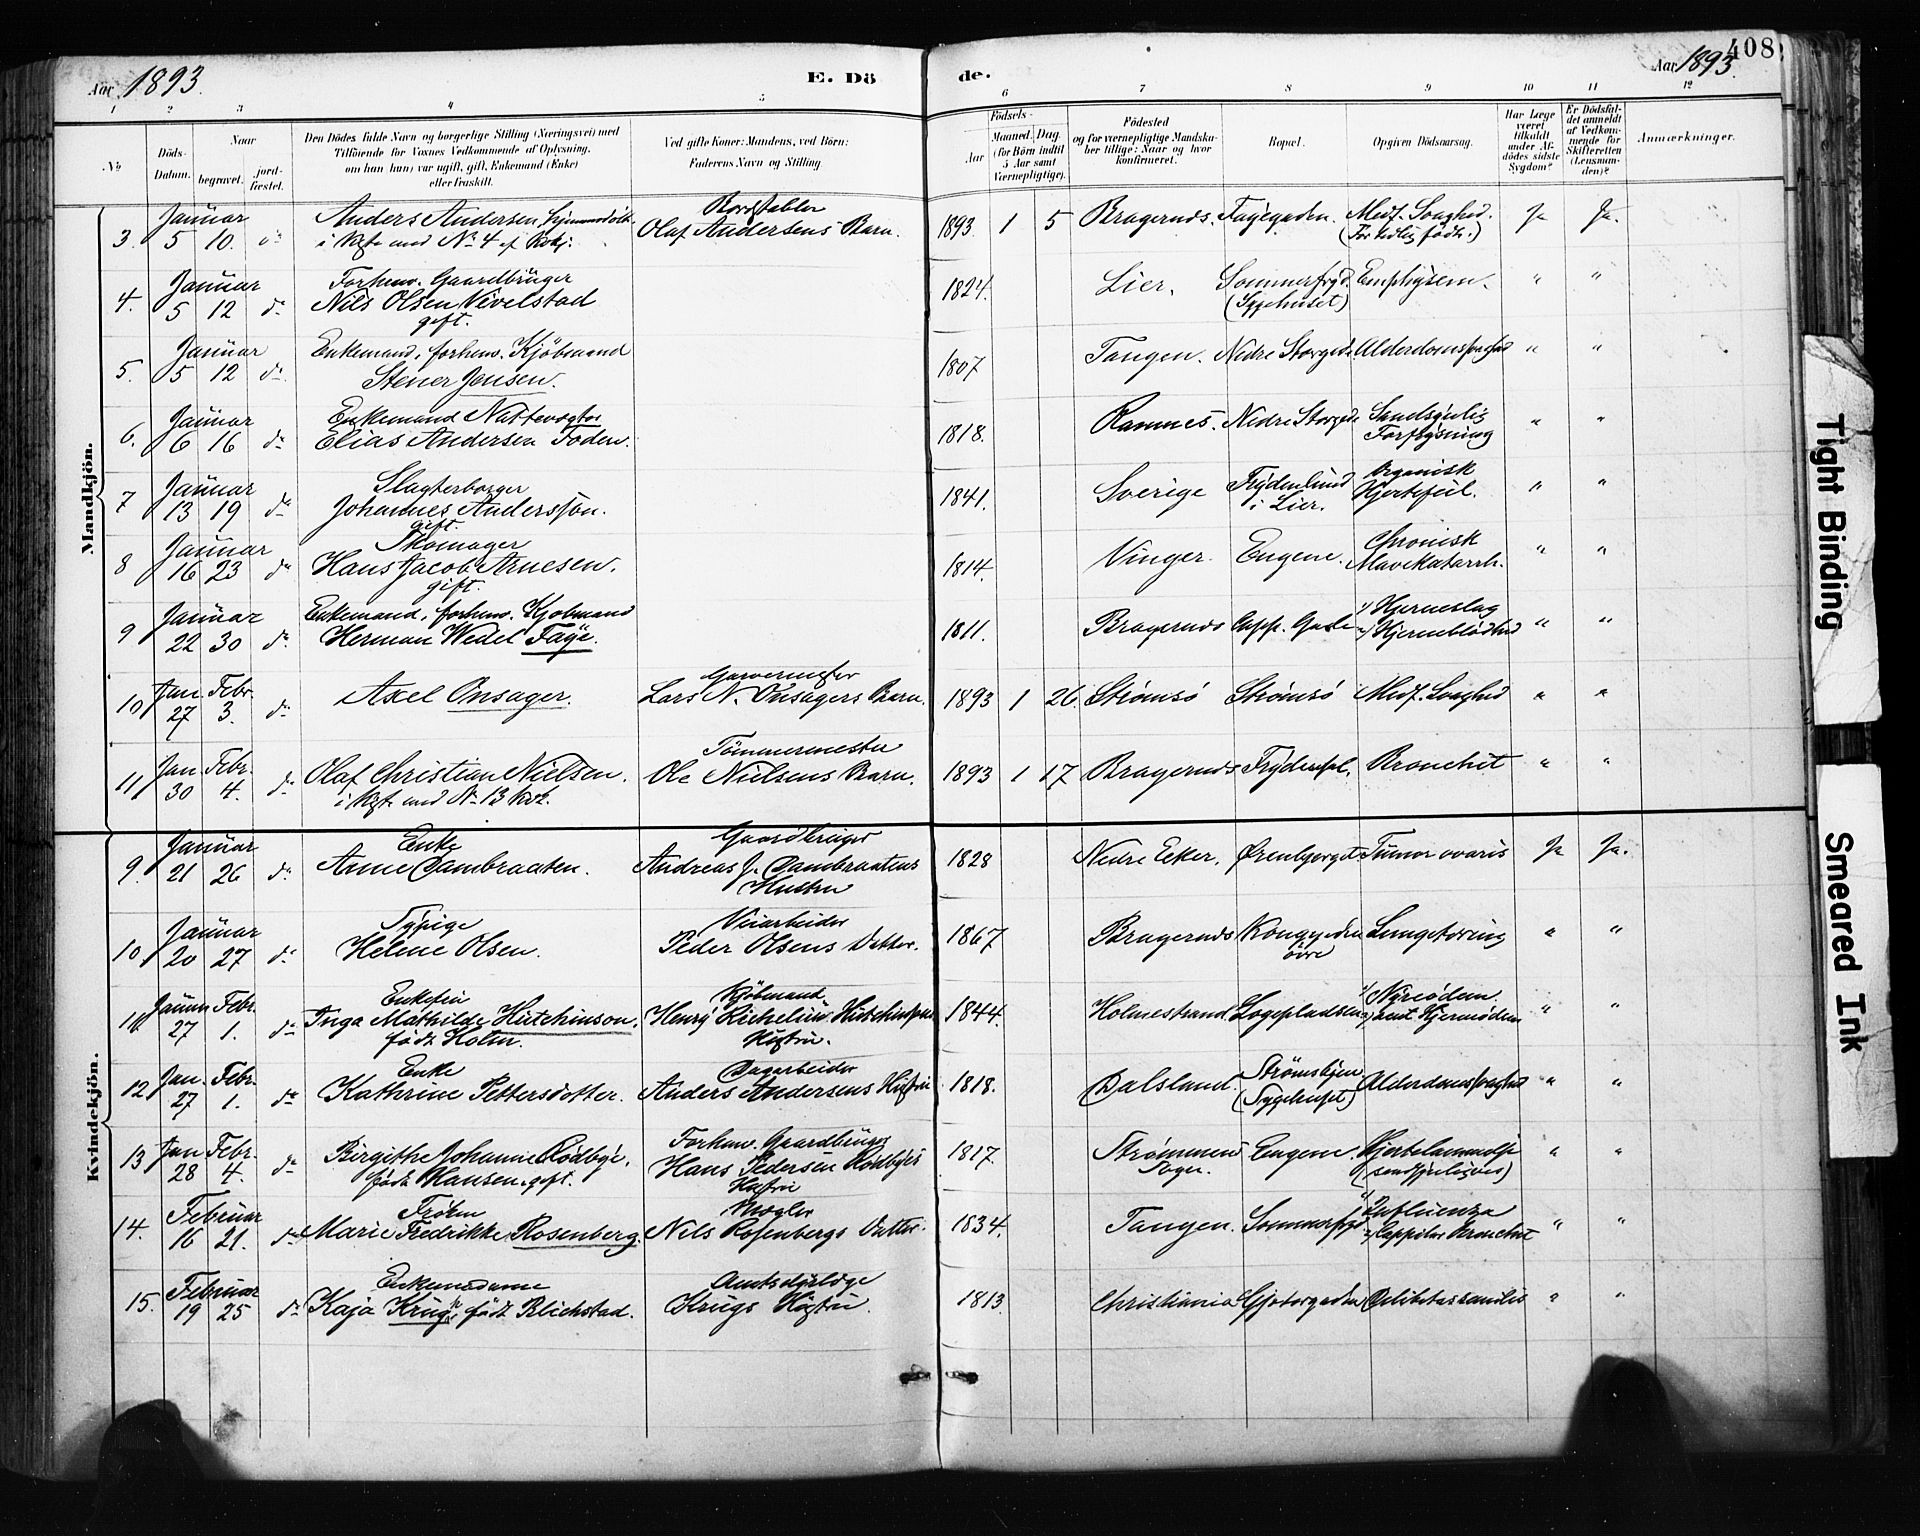 408
Aar 1893.
E. Döde.
Aar 1893.
1 2 3 4 5 6 7 8 9 10 11 12
No
Döds-Datum.
Naar
begravet.
jordfæstet.
Den Dödes fulde Navn og borgerlige Stilling (Næringsvei) med
Tilföiende for Voxnes Vedkommende af Oplysning,
om han (hun) var ugift, gift, Enkemand (Enke)
eller fraskilt.
Ved gifte Koner: Mandens, ved Börn:
Faderens Navn og Stilling.
Födsels-
Aar
Maaned. Dag.
(for Börn indtil
5 Aar samt
Værnepligtige).
Födested
og for værnepligtige Mandskaber tillige: Naar og hvor
konfirmeret.
Bopæl.
Opgiven Dödsaarsag.
Har Læge
været
tilkaldt
under Afdödes sidste
Sygdom?
Er Dödsfaldet anmeldt
af Vedkommende for
Skifteretten
(Lensmanden)?
Anmærkninger.
Mandkjön.
3. Januar 5 10. do Anders Andersen hjemmedöbt
i Kgft. med No 4 af Kvkj.
Olaf Andersens Barn. 1893. 1 5 Bragernæs. Fayegaden. Medf. Svaghed.
(For tidlig födt.) Ja Ja.
4. Januar 5 12 do Forhenv. Gaardbruger
Nils Olsen Vivelstad
gift. 1824. Lier. Sommerfryd.
(Sygehuset) Emphysem. " "
5. Januar 5 12 do. Enkemand, forhenv. Kjöbmand
Stener Jensen. 1807 Tangen. Nedre Storgade Alderdomssvaghed " "
6. Januar 6 16 do Enkemand Nattevægter
Elias Andersen Foden. 1818. Ramnes. Nedre Storgade Sandsynlig
Forfrysning " "
7 Januar 13 19 do Slagterborger
Johannes Andersson.
gift. 1841. Sverige Frydenlund
i Lier. Organisk
Hjertefeil. " "
8 Januar 16 23 do Skomager
Hans Jacob Arnesen.
gift. 1814. Vinger. Engene. Chronisk
Mavekatarrh. " "
9 Januar 22 30 do. Enkemand, forhenv. Kjöbmand
Herman Wedel Faye. 1811. Bragernæs Capp. Gade 1) Hjerneslag
2) Hjerneblödhed " "
10 Jan. 27 Febr. 3. do Axel Onsager. Garvermester
Lars N. Onsagers Barn. 1893 1 26. Strömsö Strömsö Medf. Svaghed " "
11 Jan. 30 Febr. 4. do Olaf Christian Nielsen.
i Kgft. med No 13 Kvk.
Tömmermester
Ole Nielsens Barn. 1893 1 17 Bragernæs Frydenhal. Bronchit " "
Kvindekjön.
9. Januar 21 26 do Enke
Anne Dambraaten. Gaardbruger
Andreas J. Dambraatens
Hustru 1828 Nedre Eeker. Ørenbjerget Tumor ovaris Ja Ja.
10. Januar 20 27 do Sypige
Helene Olsen. Veiarbeider
Peder Olsens Datter. 1867 Bragernæs Kongegaden
övre Lungetæring " "
11. Januar 27 Febr. 1. do Enkefru
Inga Mathilde Hutchinson.
födt Holm. Kjöbmand
Henry Richelieu Hutchinsons
Hustru. 1844. Holmestrand Logepladsen 1) Nyreödem.
2) samt Hjerneödem " "
12 Jan. 27 Febr. 1. do Enke
Kathrine Pettersdotter. Dagarbeider
Anders Andersens Hustru 1818. Dalsland. Strömsbyen
(Sygehuset) Alderdomssvaghed " "
13 Jan 28 Febr. 4. do Birgithe Johanne Rödbye.
födt Hansen. gift. Forhenv. Gaardbruger
Hans Pedersen Rödbyes
Hustru 1817. Strömmen
Sogn. Engene. Hjertelammelse
(sandsynligvis) " "
14. Februar 16 21. do Fröken
Marie Fredrikke Rosenberg. Mægler
Nils Rosenbergs Datter. 1834. Tangen. Sommerfryd 1) Influenza
2) Capillær Bronchit " "
15. Februar 19 25 do Enkemadame
Kaja Krug, födt Blichstad. Amtsdyrlæge
Krugs Hustru. 1813. Christiania Gjetergaden Debilitas senilis " "
Tight Binding
Smeared Ink